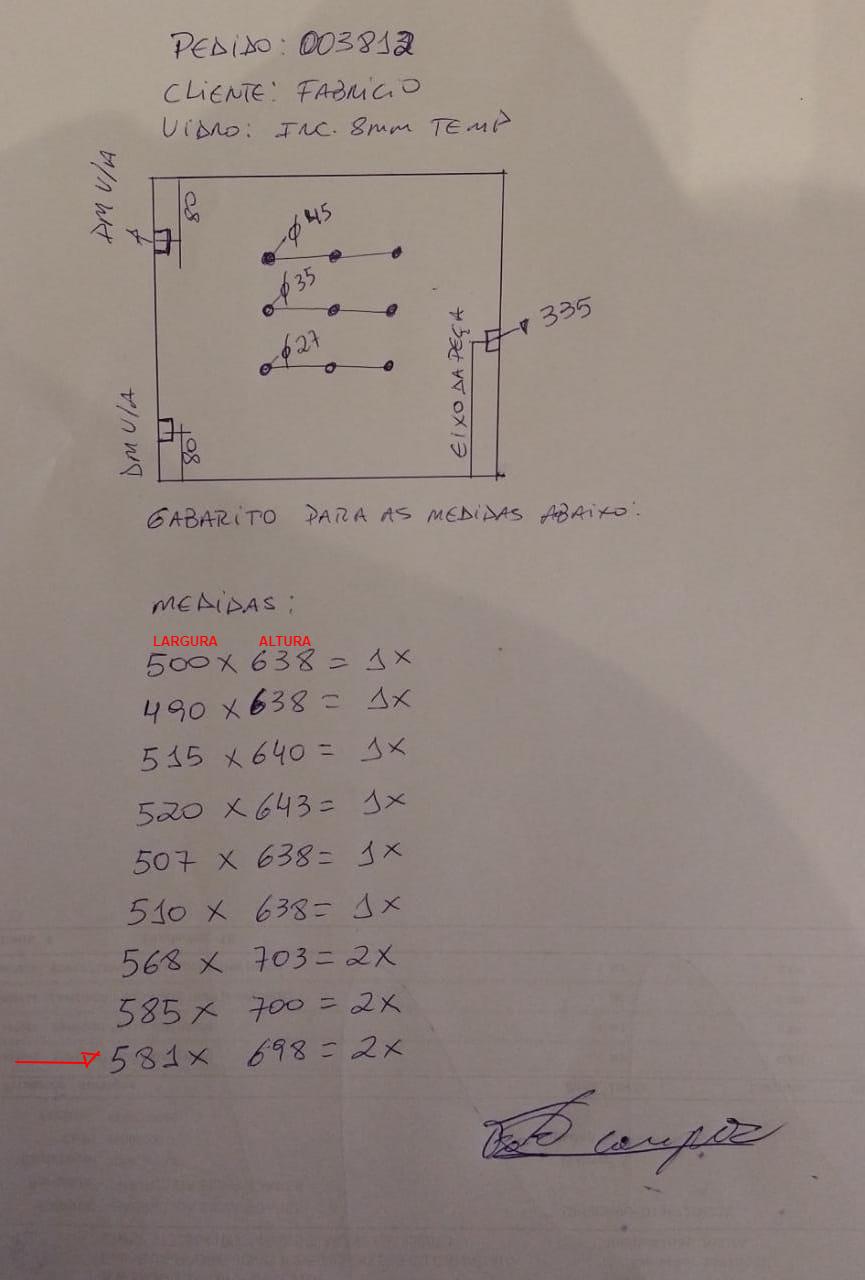 PEDIDO: 003812
CLIENTE: FABRICIO
VIDRO: INC. 8mm TEMP
DM V/A
80
φ45
φ35
φ27
335
EIXO DA PEÇA
DM V/A
80
GABARITO PARA AS MEDIDAS ABAIXO:
MEDIDAS:
LARGURA ALTURA
500 x 638 = 1x
490 x 638 = 1x
515 x 640 = 1x
520 x 643 = 1x
507 x 638 = 1x
510 x 638 = 1x
568 x 703 = 2x
585 x 700 = 2x
581 x 698 = 2x